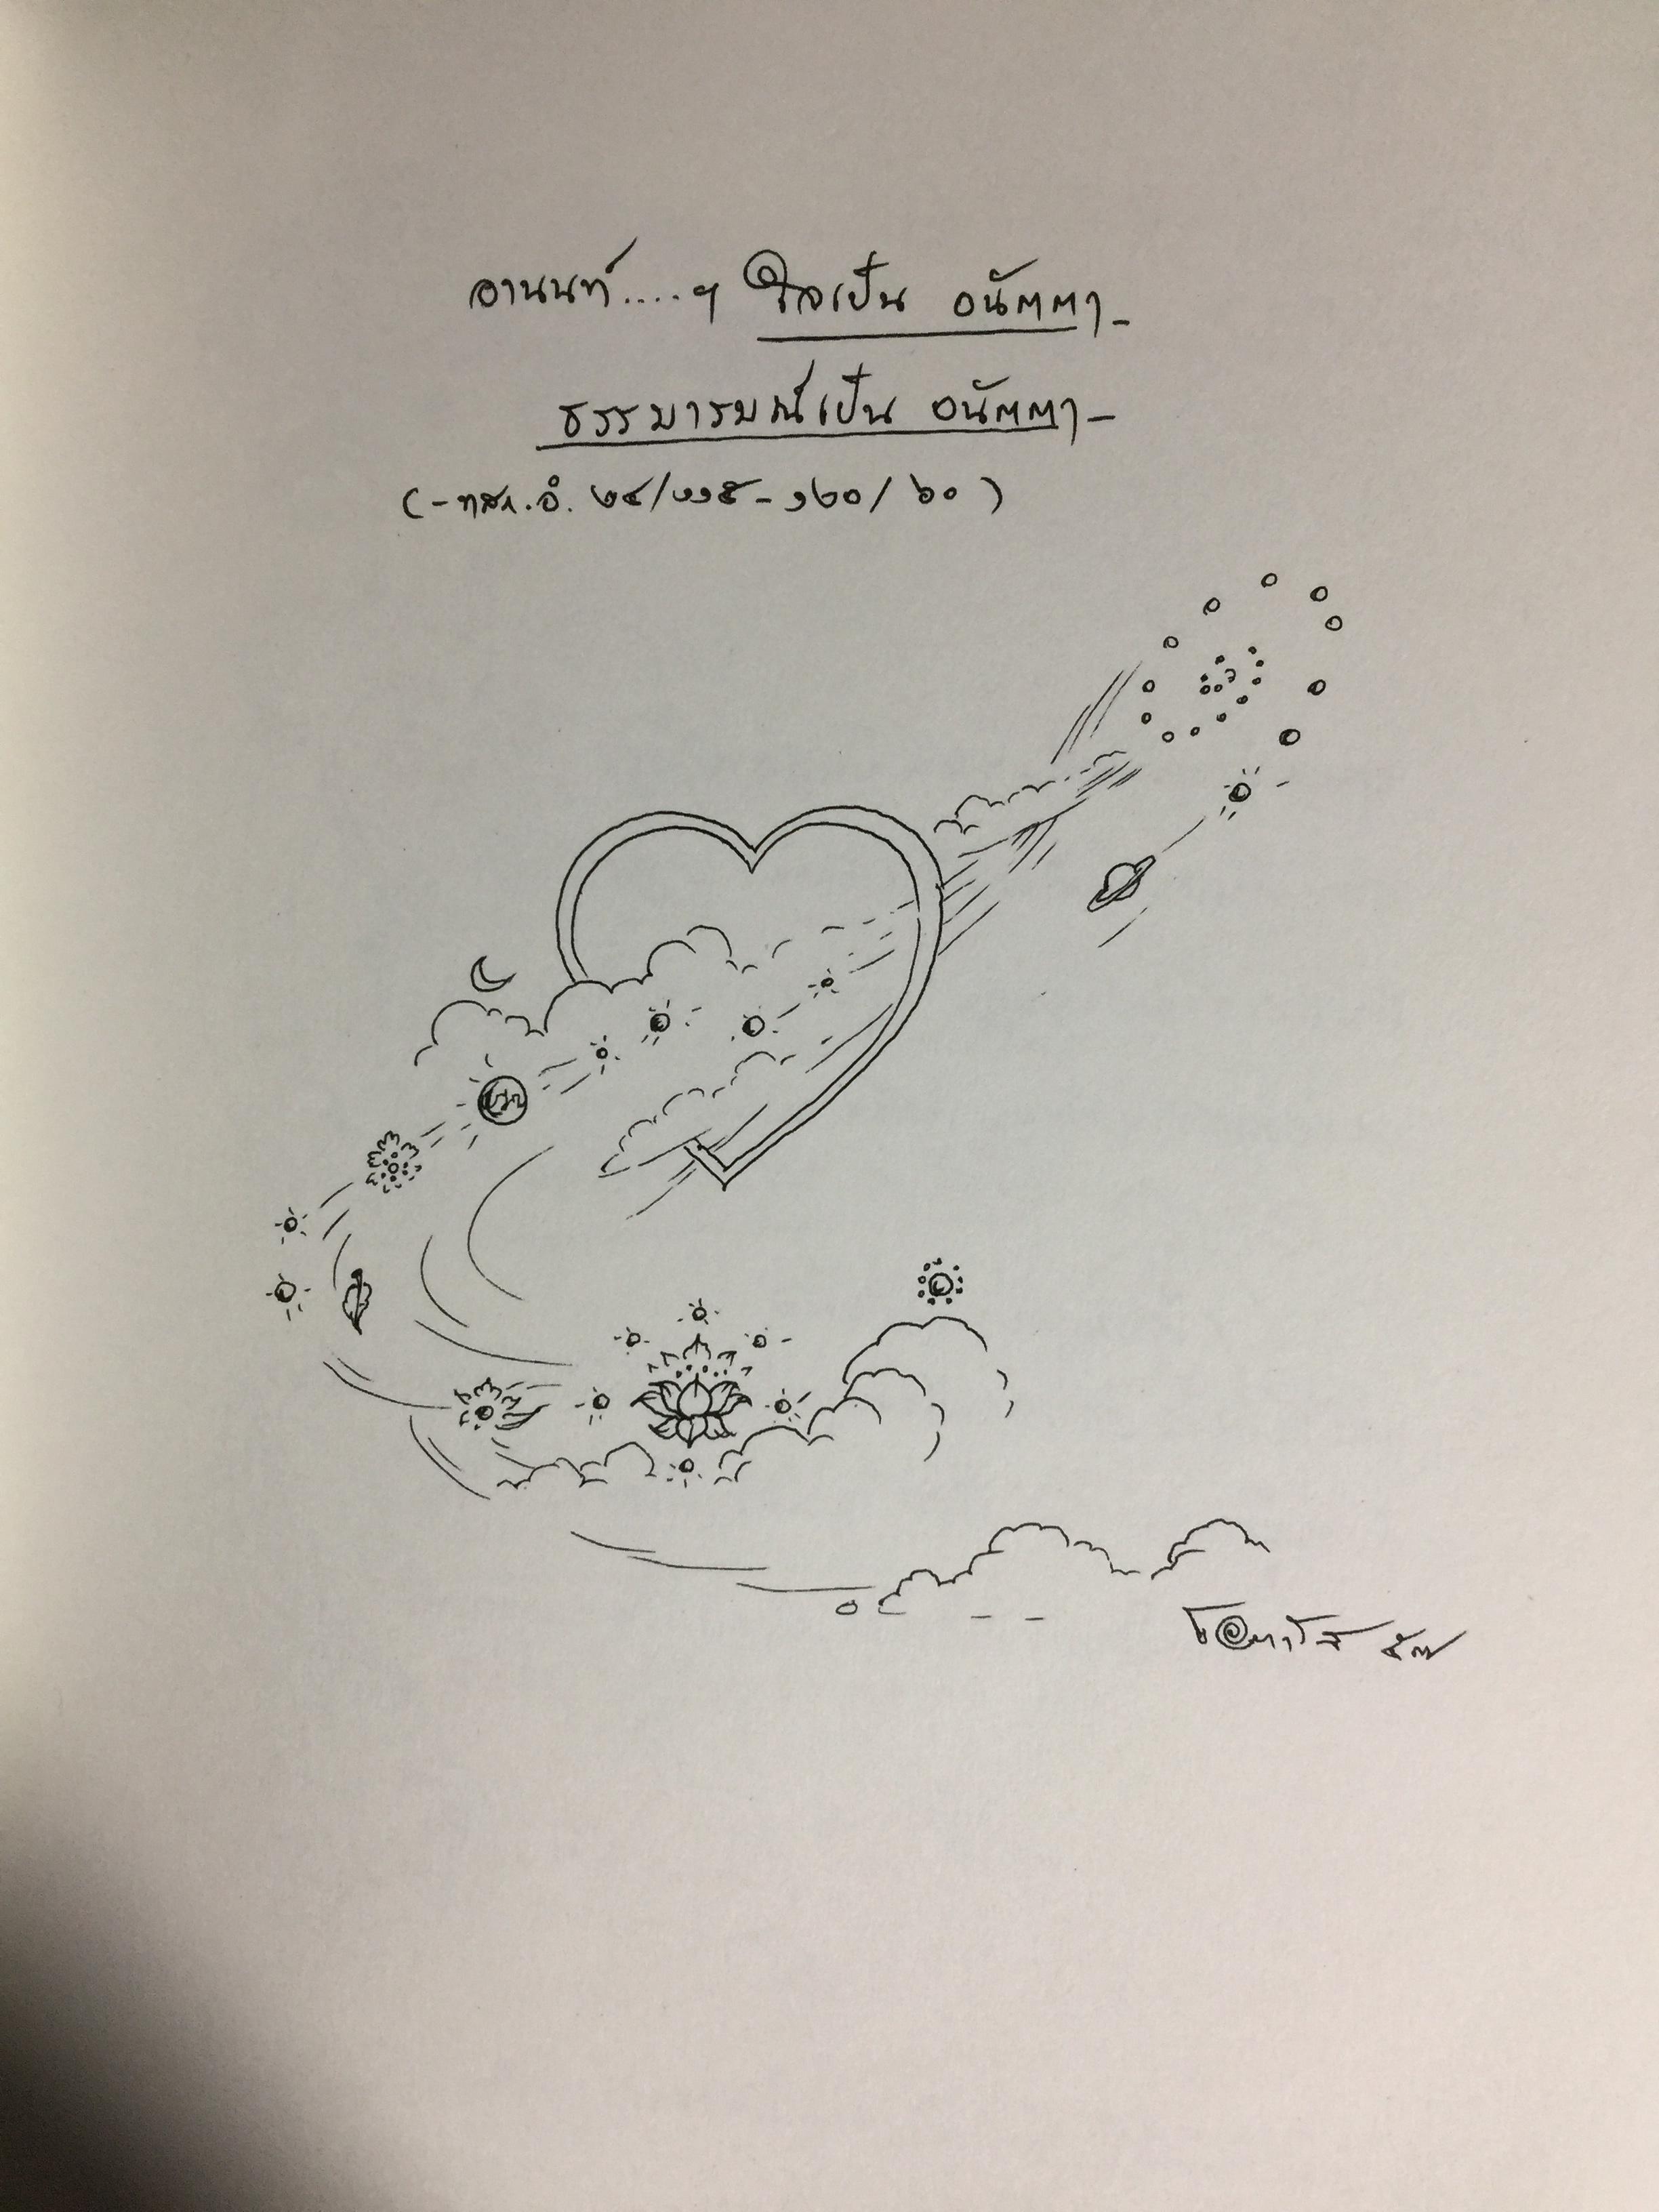 อานนท์....ฯ ใจเป็น อนัตตา-
ธรรมารมณ์เป็น อนัตตา-
(-ทสก.อํ. ๒๔/๑๑๕-๑๒๐/๖๐)